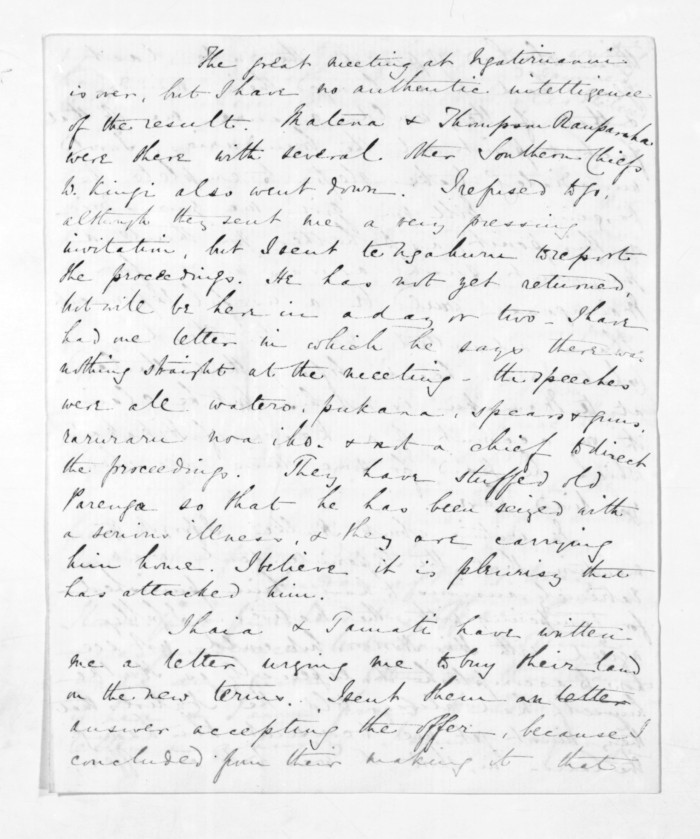 The great meeting at Ngatiruanui
is over, but I have no authentic intelligence
of the result. Matena & Thompson Rauparaha
were there with several other Southern Chiefs
W. Kingi also went down. I refused to go,
although they sent me a very pressing
invitation, but I sent te Ngahuru to report
the proceedings. He has not yet returned,
but will be here in a day or two – I have
had one letter in which he says there was
nothing straight at the meeting – the speeches
were all watero, pukana, spears & guns,
raruraru noa iho. & not a chief to direct
the proceedings. They have stuffed old
Parenga so that he has been seized with
a serious illness, & they are carrying
him home. I believe it is pleurisy that
has attacked him.
Ihaia & Tamati have written
me a letter urging me to buy their land
on the new terms. I sent them letter
answer accepting the offer, because I
concluded from their making it that